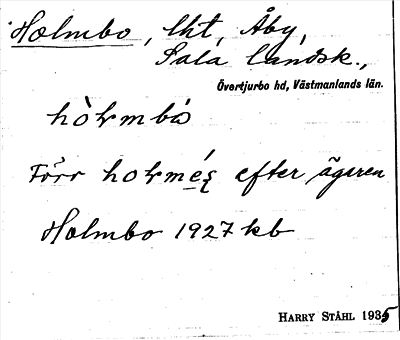 Holmbo, lht, Åby,
Sala landsk.,
Övertjurbo hd, Västmanlands län.
Förr holmes efter ägaren
Holmbo 1927 kb
HARRY STÅHL 1935